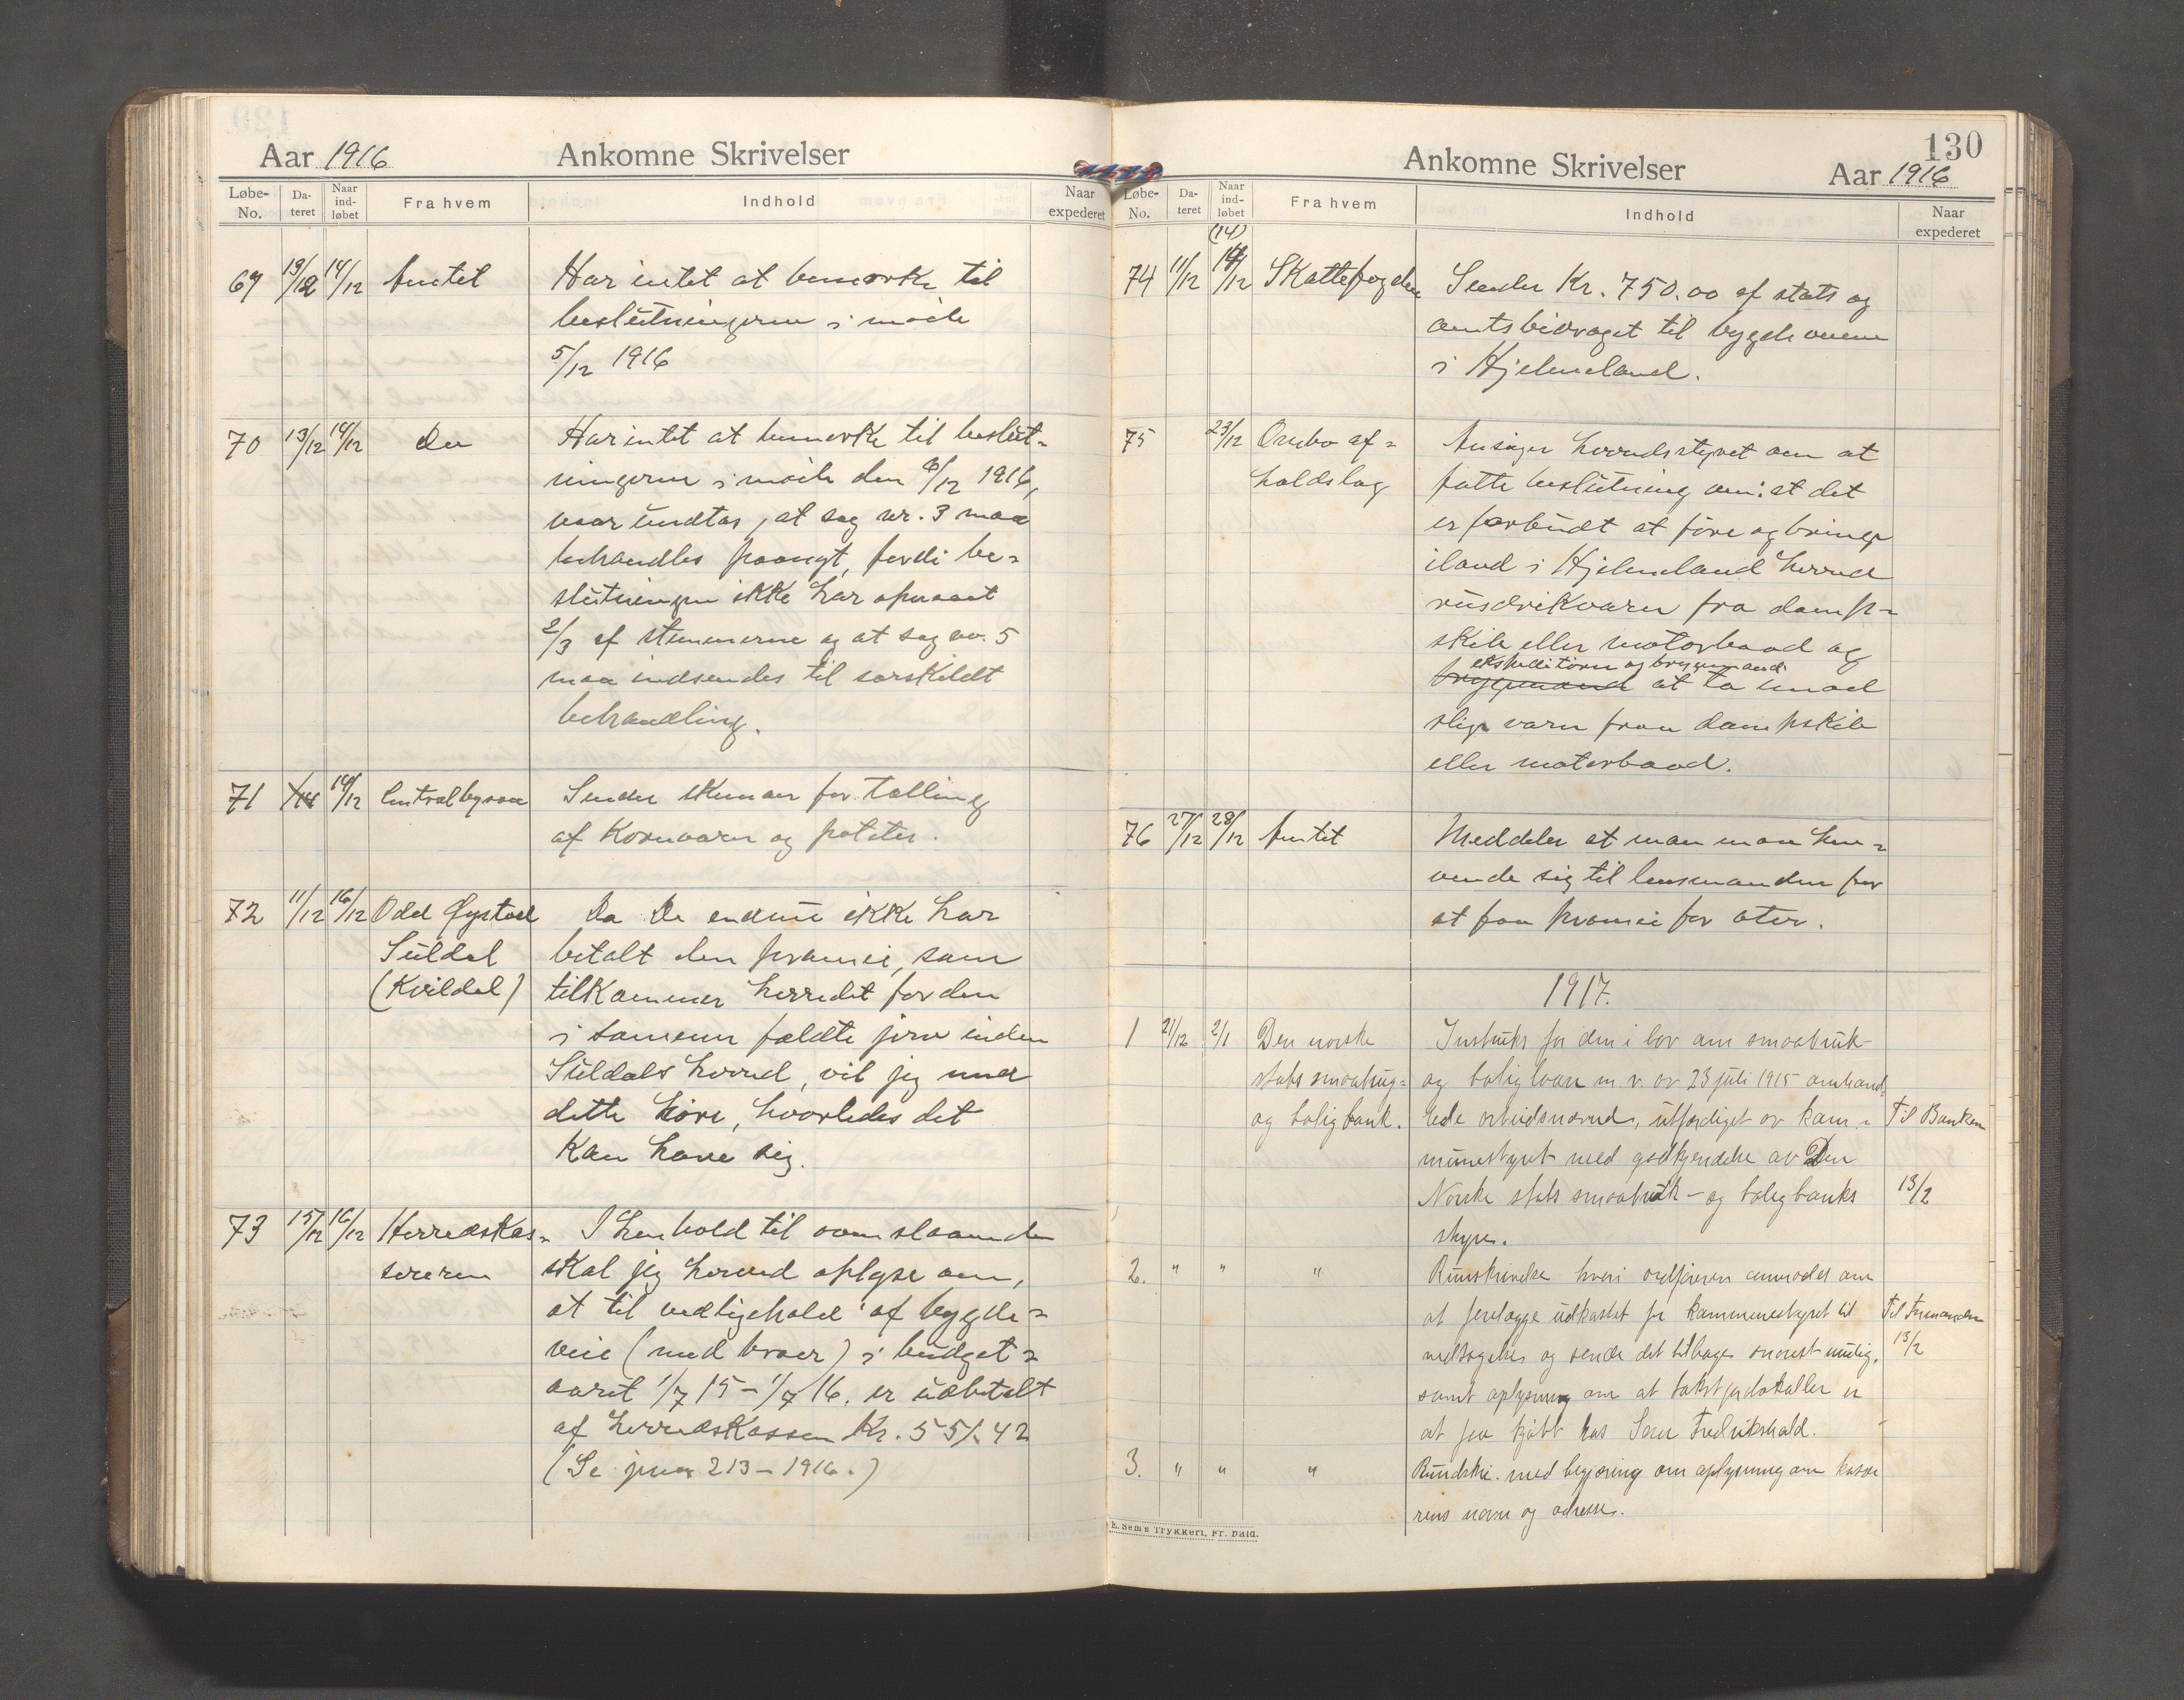 Aar 1916 Ankomne Skrivelser
Løbe-No. Dateret Naar indløbet Fra hvem Indhold Naar expederet
69 13/12 14/12 Amtet Har intet at bemærke til
beslutningerne i møde
5/12 1916
70 13/12 14/12 Do Har intet at bemerke til beslut-
ningerne i møde den 6/12 1916,
naar undtas, at sag nr. 3 maa
behandles paanyt, fordi be-
slutningen ikke har opnaaet
2/3 af stemmerne og at sag nr. 5
maa indsendes til særskildt
behandling.
71 14/12 Centralbyraa Sender skemaer for tælling
af Kornvarer og poteter.
72 11/12 16/12 Odd Øystad Da De endnu ikke har
Suldal betalt den præmie, som
(Kvildal) tilkommer herredet for den
i sommer fældte jerv inden
Suldals herred, vil jeg med
dette høre, hvorledes det
Kan have sig.
73 15/12 16/12 Herredskas- I henhold til omslaaende
sereren skal jeg herved oplyse om,
at til vedligehold af bygde-
veie (med broer) i budget-
aaret 1/7 15 - 1/7 16. er udbetalt
af herredskassen Kr. 551.42
(Se jour 213 - 1916.)
130
Ankomne Skrivelser Aar 1916
Løbe-No. Dateret Naar indløbet Fra hvem Indhold Naar expederet
(14)
74 11/12 14/12 Skattefogden Sender Kr. 750.00 af stats og
amtsbidraget til bygdeveiene
i Hjelmeland.
75 23/12 Ombo af- Ansøger herredsstyret om at
holdslag fatte beslutning om: at det
er forbudt at føre og bringe
iland i Hjelmeland herred
rusdrikvarer fra damp-
skib eller motorbaad og
ekspeditører og bryggemænd
bryggemænd at ta imod
slige varer fraa dampskib
eller motorbaad.
76 27/12 28/12 Amtet Meddeler at man maa hen-
vende sig til lensmanden for
at faa præmie for oter.
1917.
1 21/12 2/1 Den norske Instruks for den i lov om smaabruk-
stats smaabrug- og boliglaan m.v. av 23 juli 1915 omhand-
og boligbank. lede arbeidsnævnd, utfærdiget av kom- Til Banken
munestyret med godkjendelse av Den
Norske stats smaabruk- og boligbanks 13/2
styre.
2. " " " Rundskrivelse hvori ordføreren anmodes om
at forelægge udkastet for kommunestyret til Til Formanden
vedtagelse og sende det tilbage snarest mulig, 13/2
samt oplysning om at takstprotokoller er
at faa kjøbt hos Sem Fredrikshald.
3. " " " Rundskr. med begjæring om oplysning om kasse-
rens navn og adresse.
E. Sem's Trykkeri, Fr. hald.